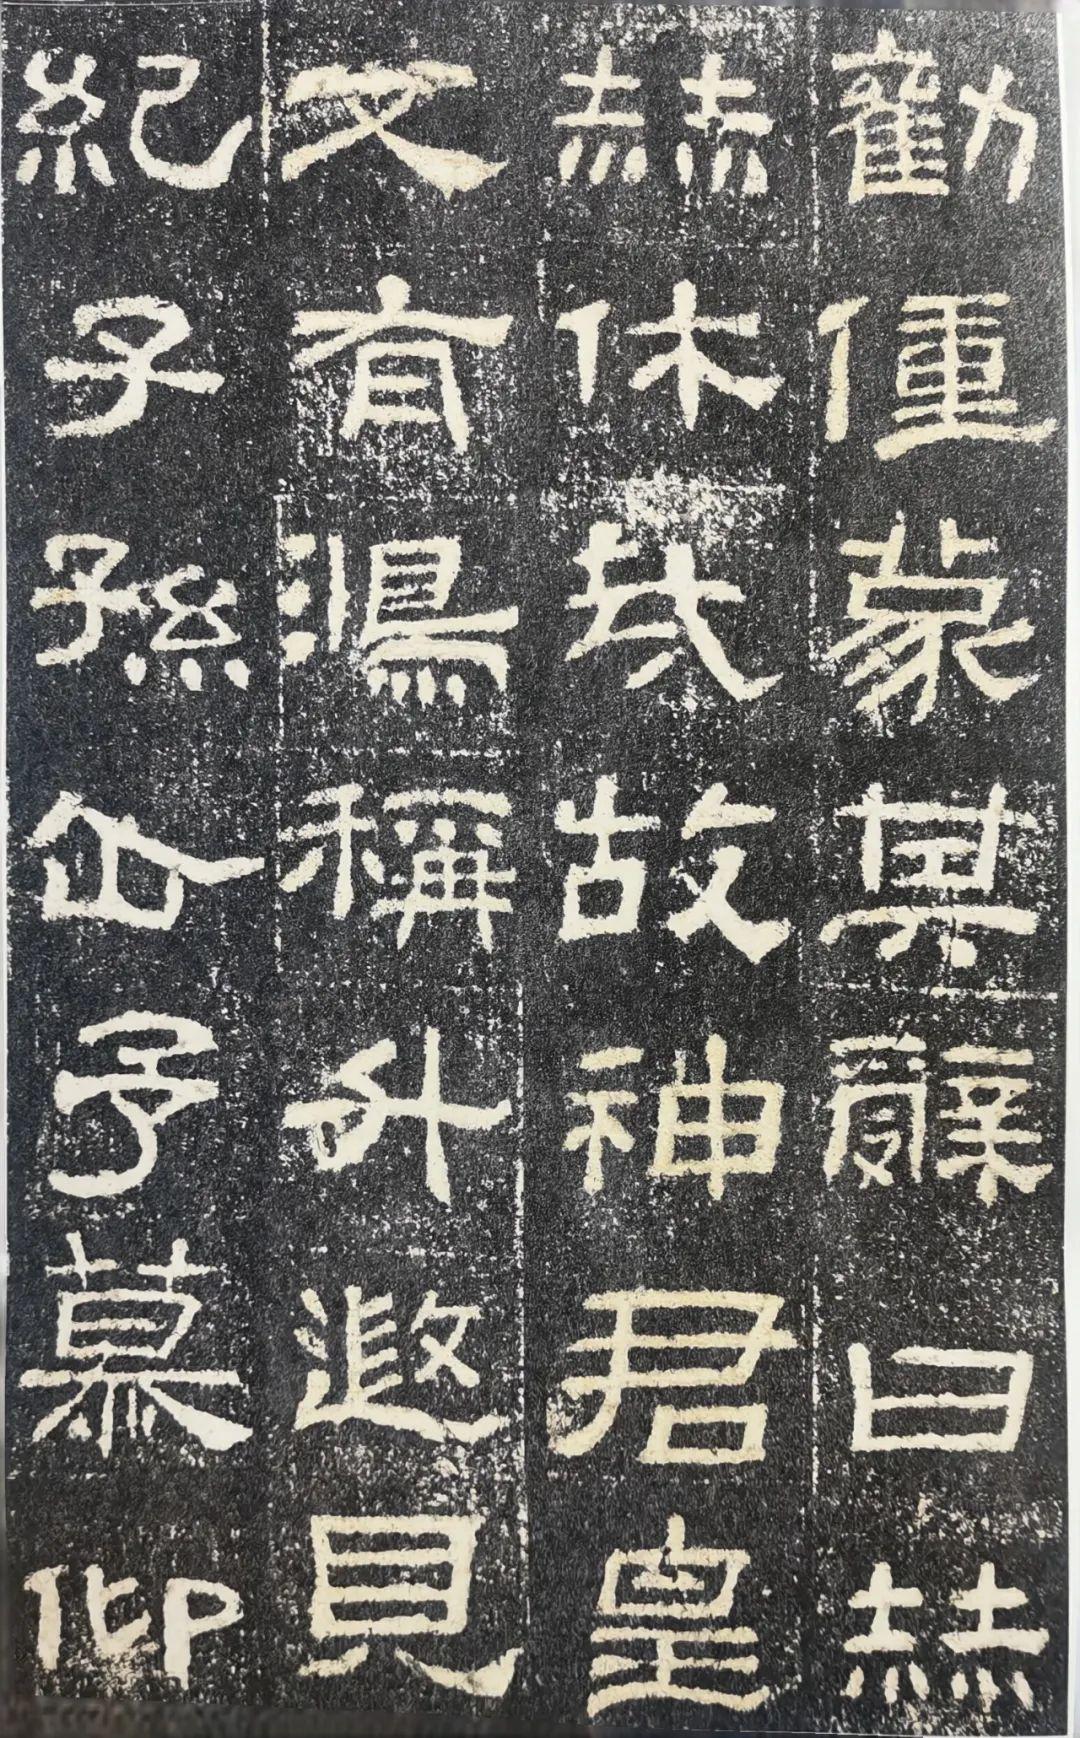 勸僮蒙其辭曰赫
赫休哉故神君皇
又有鴻稱升遐見
紀子孫企予慕仰